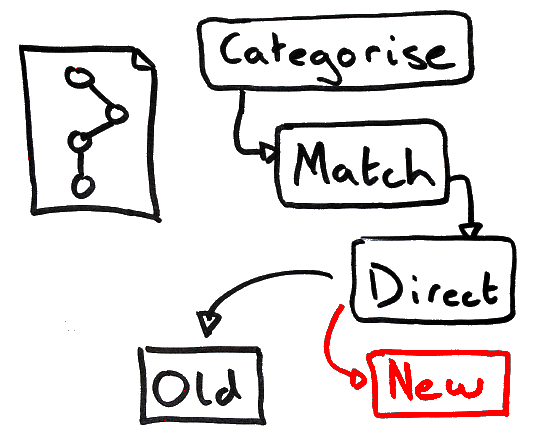 Categorise
Match
Direct
Old
New